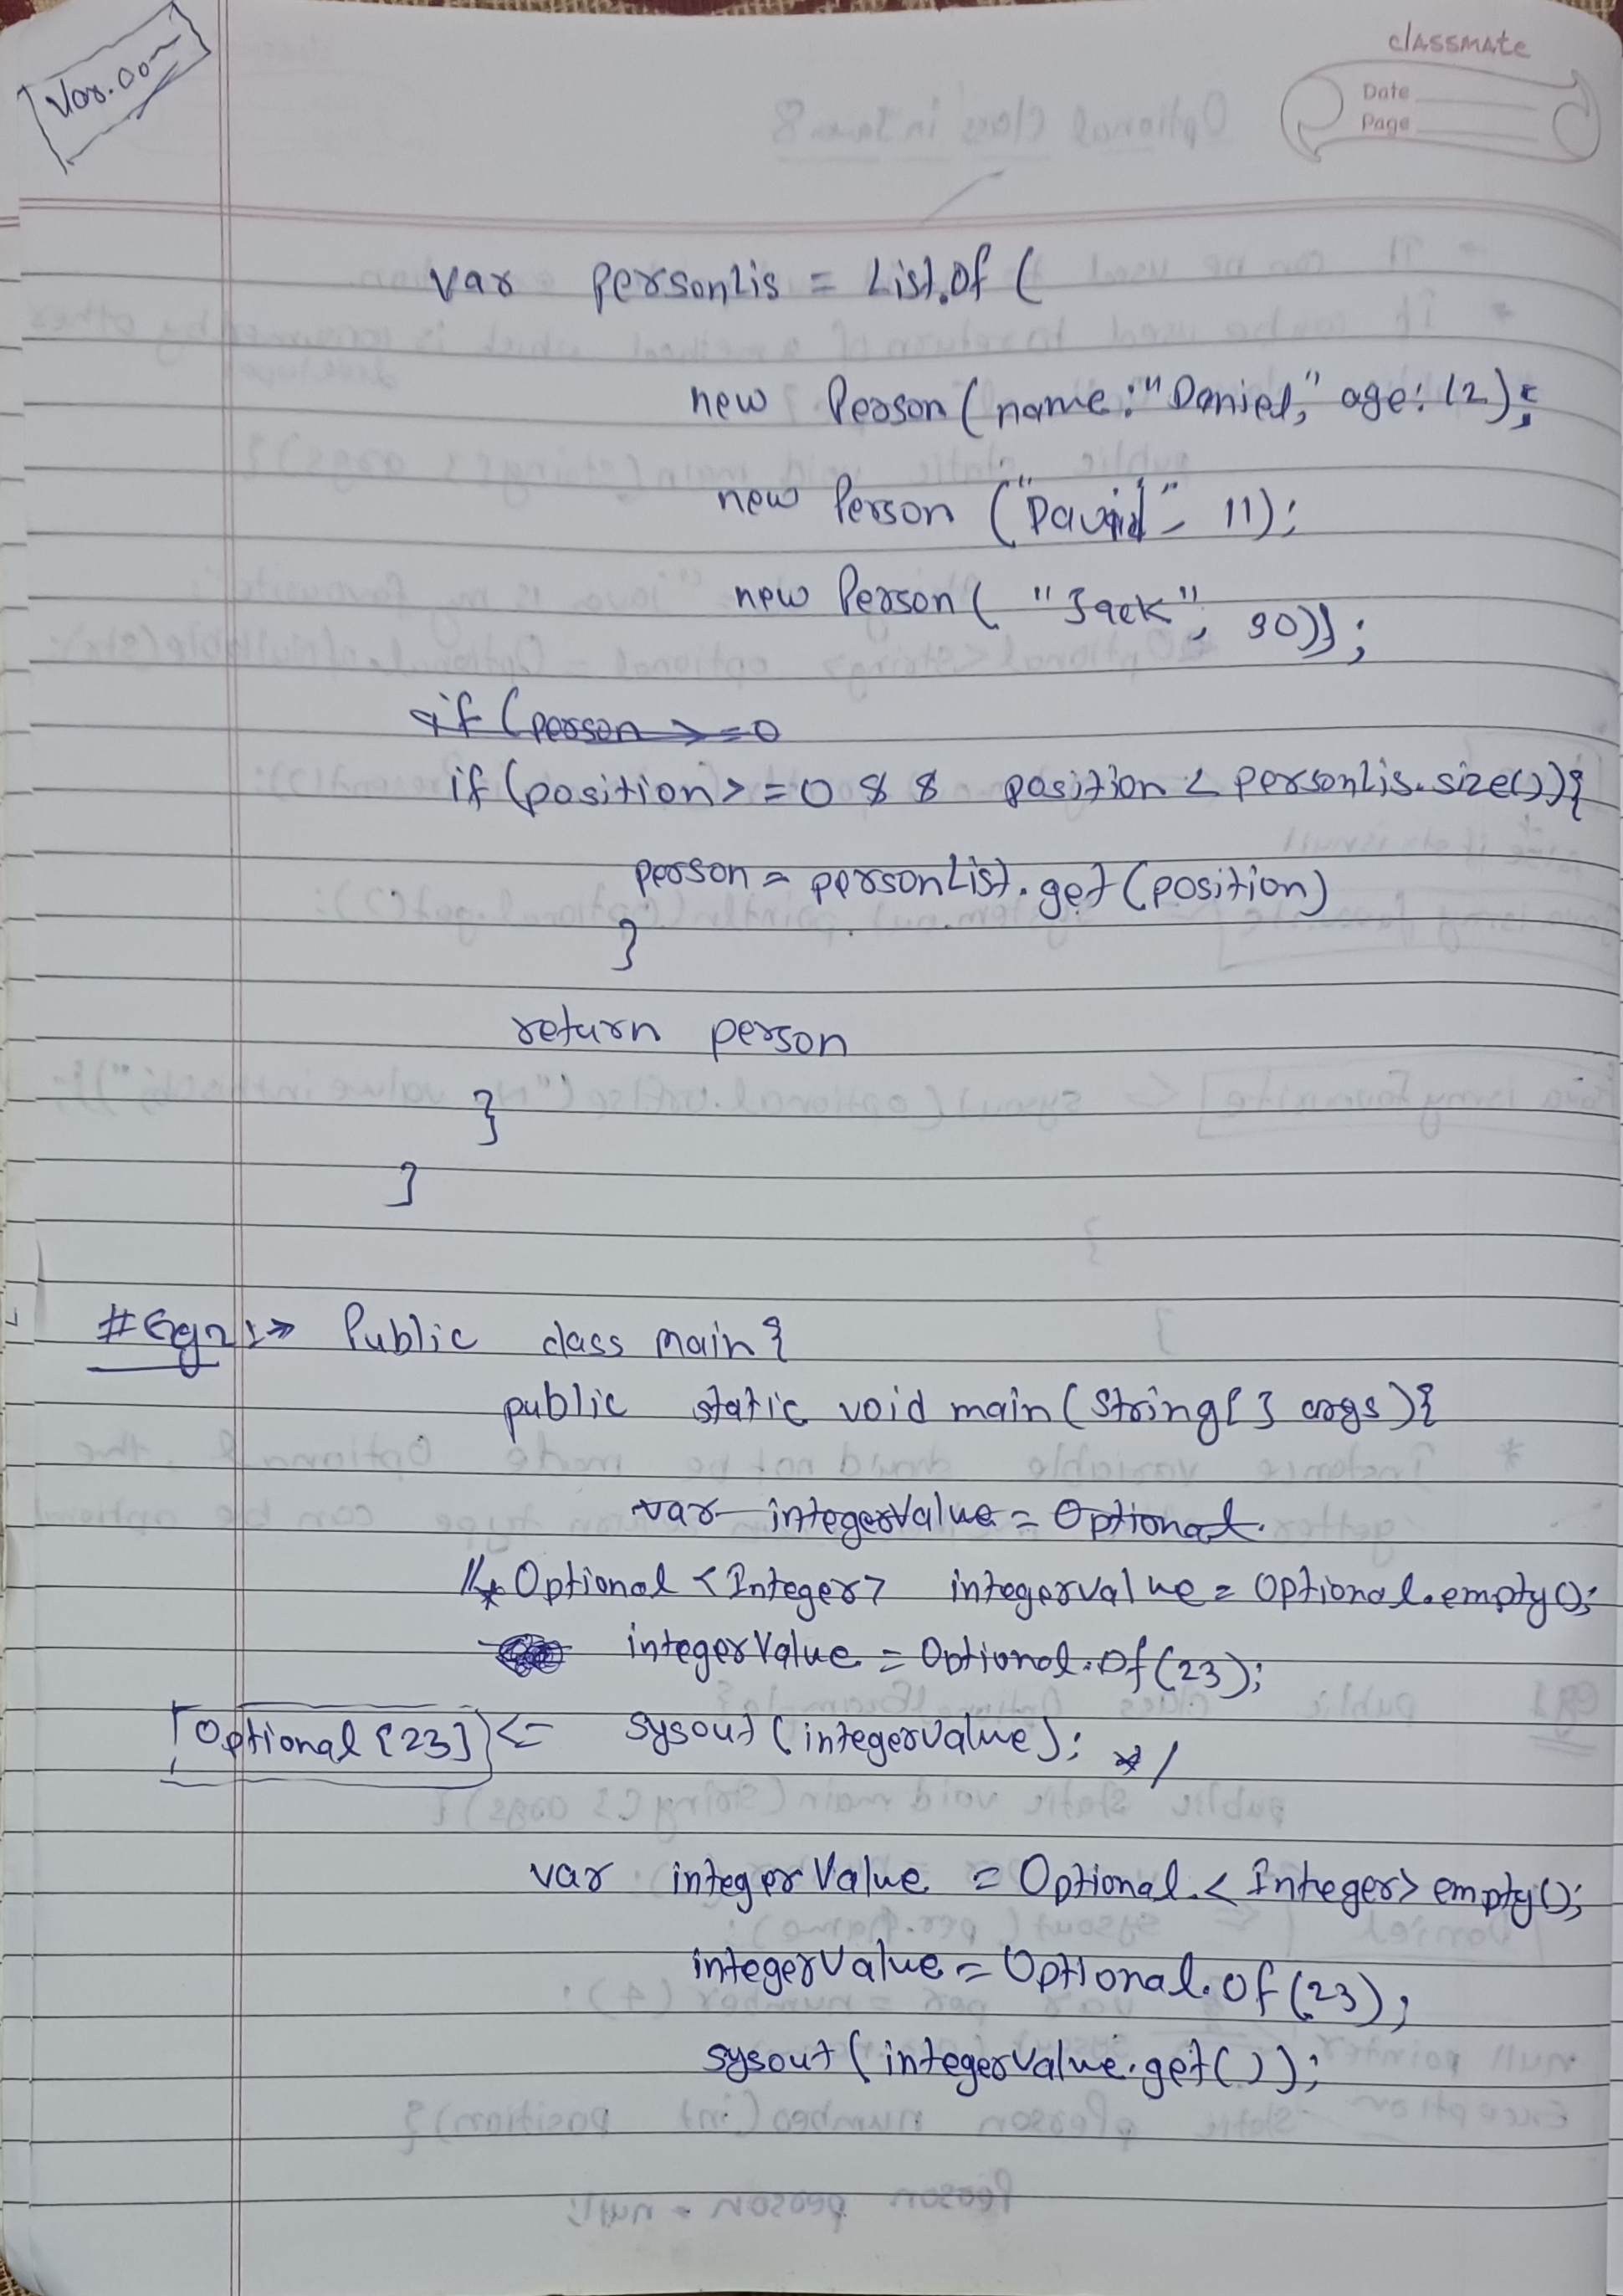 classmate
Date
Page
var personLis = List.of (
new Person ( name : "Daniel," age: 12);
new Person ("David", 11);
new Person ( "Jack", 90));
if (person >=0
if (position >= 0 && position < personLis.size()){
person = personList.get (position)
}
return person
}
}
#Eg2:→ Public class main{
public static void main (String[] args){
var integerValue = Optional.
//* Optional <Integer> integervalue = Optional.empty();
integerValue = Optional.of(23);
Optional [23] <= sysout (integervalue); */
var integerValue = Optional.<Integer> empty();
integerValue = Optional.of (23);
sysout ( integerValue.get());